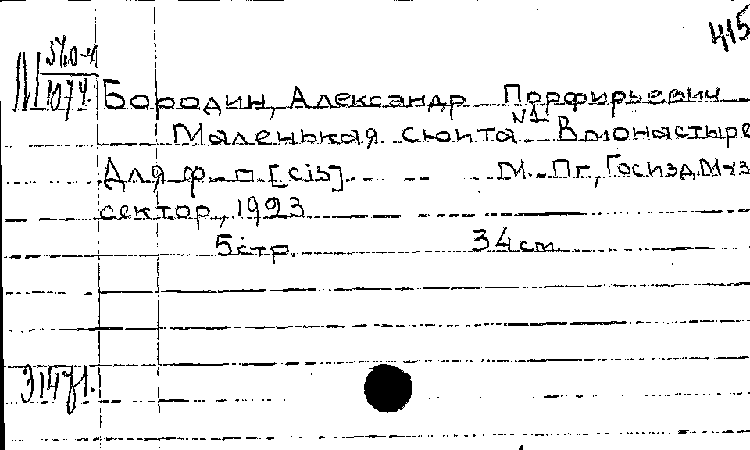 415
М 560-н
1074.
Бородин, Александр Порфирьевич
Маленькая сюита №1. В монастыре
Для ф-п [cis]. М.-Пг., Госизд. Муз.
сектор, 1923
5 стр. 34 см.